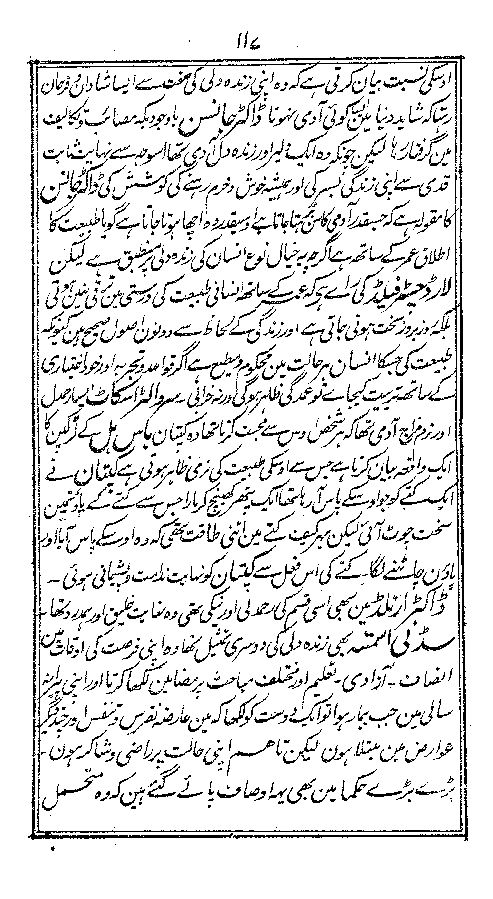 ۱۱۷
اوسکی نسبت بیان کرتی ہے کہ وہ اپنی زندہ دلی کی صفت سے ایسا شادان و فرحان
رہتا کہ شاید دنیا مین کوئی آدمی نہوتا ڈاکٹر جانسن باوجودیکہ مصائب و تکالیف
مین گرفتار رہا لیکن چونکہ وہ ایک دلیر اور زندہ دل آدمی تھا اسوجہ سے نہایت ثابت
قدمی سے اپنی زندگی بسر کی اور ہمیشہ خوش و خرم رہنے کی کوشش کی ڈاکٹر جانسن
کا مقولہ ہے کہ جسقدر آدمی کا سن بڑھتا جاتا ہے اوسیقدر وہ اچھا ہوتا جاتا ہے گویا طبیعت کا
اطلاق عمر کے ساتھ ہے اگرچہ یہ خیال نوع انسان کی زندہ دلی پر منطبق ہے لیکن
لارڈ چسٹر فیلڈ کی راے ہی کہ عمر کے ساتھ انسانی طبیعت کی درستی مین ترقی نہین ہوتی
بلکہ روز بروز سخت ہوتی جاتی ہے اور زندگی کے لحاظ سے دونون اصول صحیح ہین کیونکہ
طبیعت کی جسکا انسان ہر حالت مین محکوم و مطیع ہے اگر قواعد و تجربہ اور خود اختیاری
کے ساتھ تربیت کیجاے تو عمدگی ظاہر ہوگی ورنہ خرابی۔ سر والٹر اسکاٹ ایسا رحمدل
اور نرم مزاج آدمی تھا کہ ہر شخص اوس سے محبت کرتا تھا وہ کپتان باس ہل کے لڑکپن کا
ایک واقعہ بیان کرتا ہے جس سے اوسکی طبیعت کی نرمی ظاہر ہوتی ہے کپتان نے
ایک کتے کو جو اوسکے پاس آرہا تھا ایک پتھر کھینچ کر مارا جس سے کتے کے پاؤنمین
سخت چوٹ آئی لیکن پھر بھی کتے مین اتنی طاقت تھی کہ وہ اوسکے پاس آیا اور
پاؤن چاٹنے لگا۔ کتے کی اس فعل سے کپتان کو نہایت ندامت و پشیمانی ہوئی۔
ڈاکٹر ارنلڈ مین بھی اسی قسم کی رحمدلی اور نیکی تھی وہ نہایت خلیق اور ہمدرد تھا۔
سڈنی اسمتھ بھی زندہ دلی کی دوسری تمثیل تھا وہ اپنی فرصت کی اوقات مین
انصاف۔ آزادی۔ تعلیم اور مختلف مباحث پر مضامین لکھا کرتا اور اپنی پیرانہ
سالی مین جب بیمار ہوا تو ایک دوست کو لکھا کہ مین عارضہ نقرس و تنفس اور چند دیگر
عوارض مین مبتلا ہون لیکن تاہم اپنی حالت پر راضی و شاکر ہون۔
بڑے بڑے حکما مین بھی یہہ اوصاف پائے گئے ہین کہ وہ متحمل